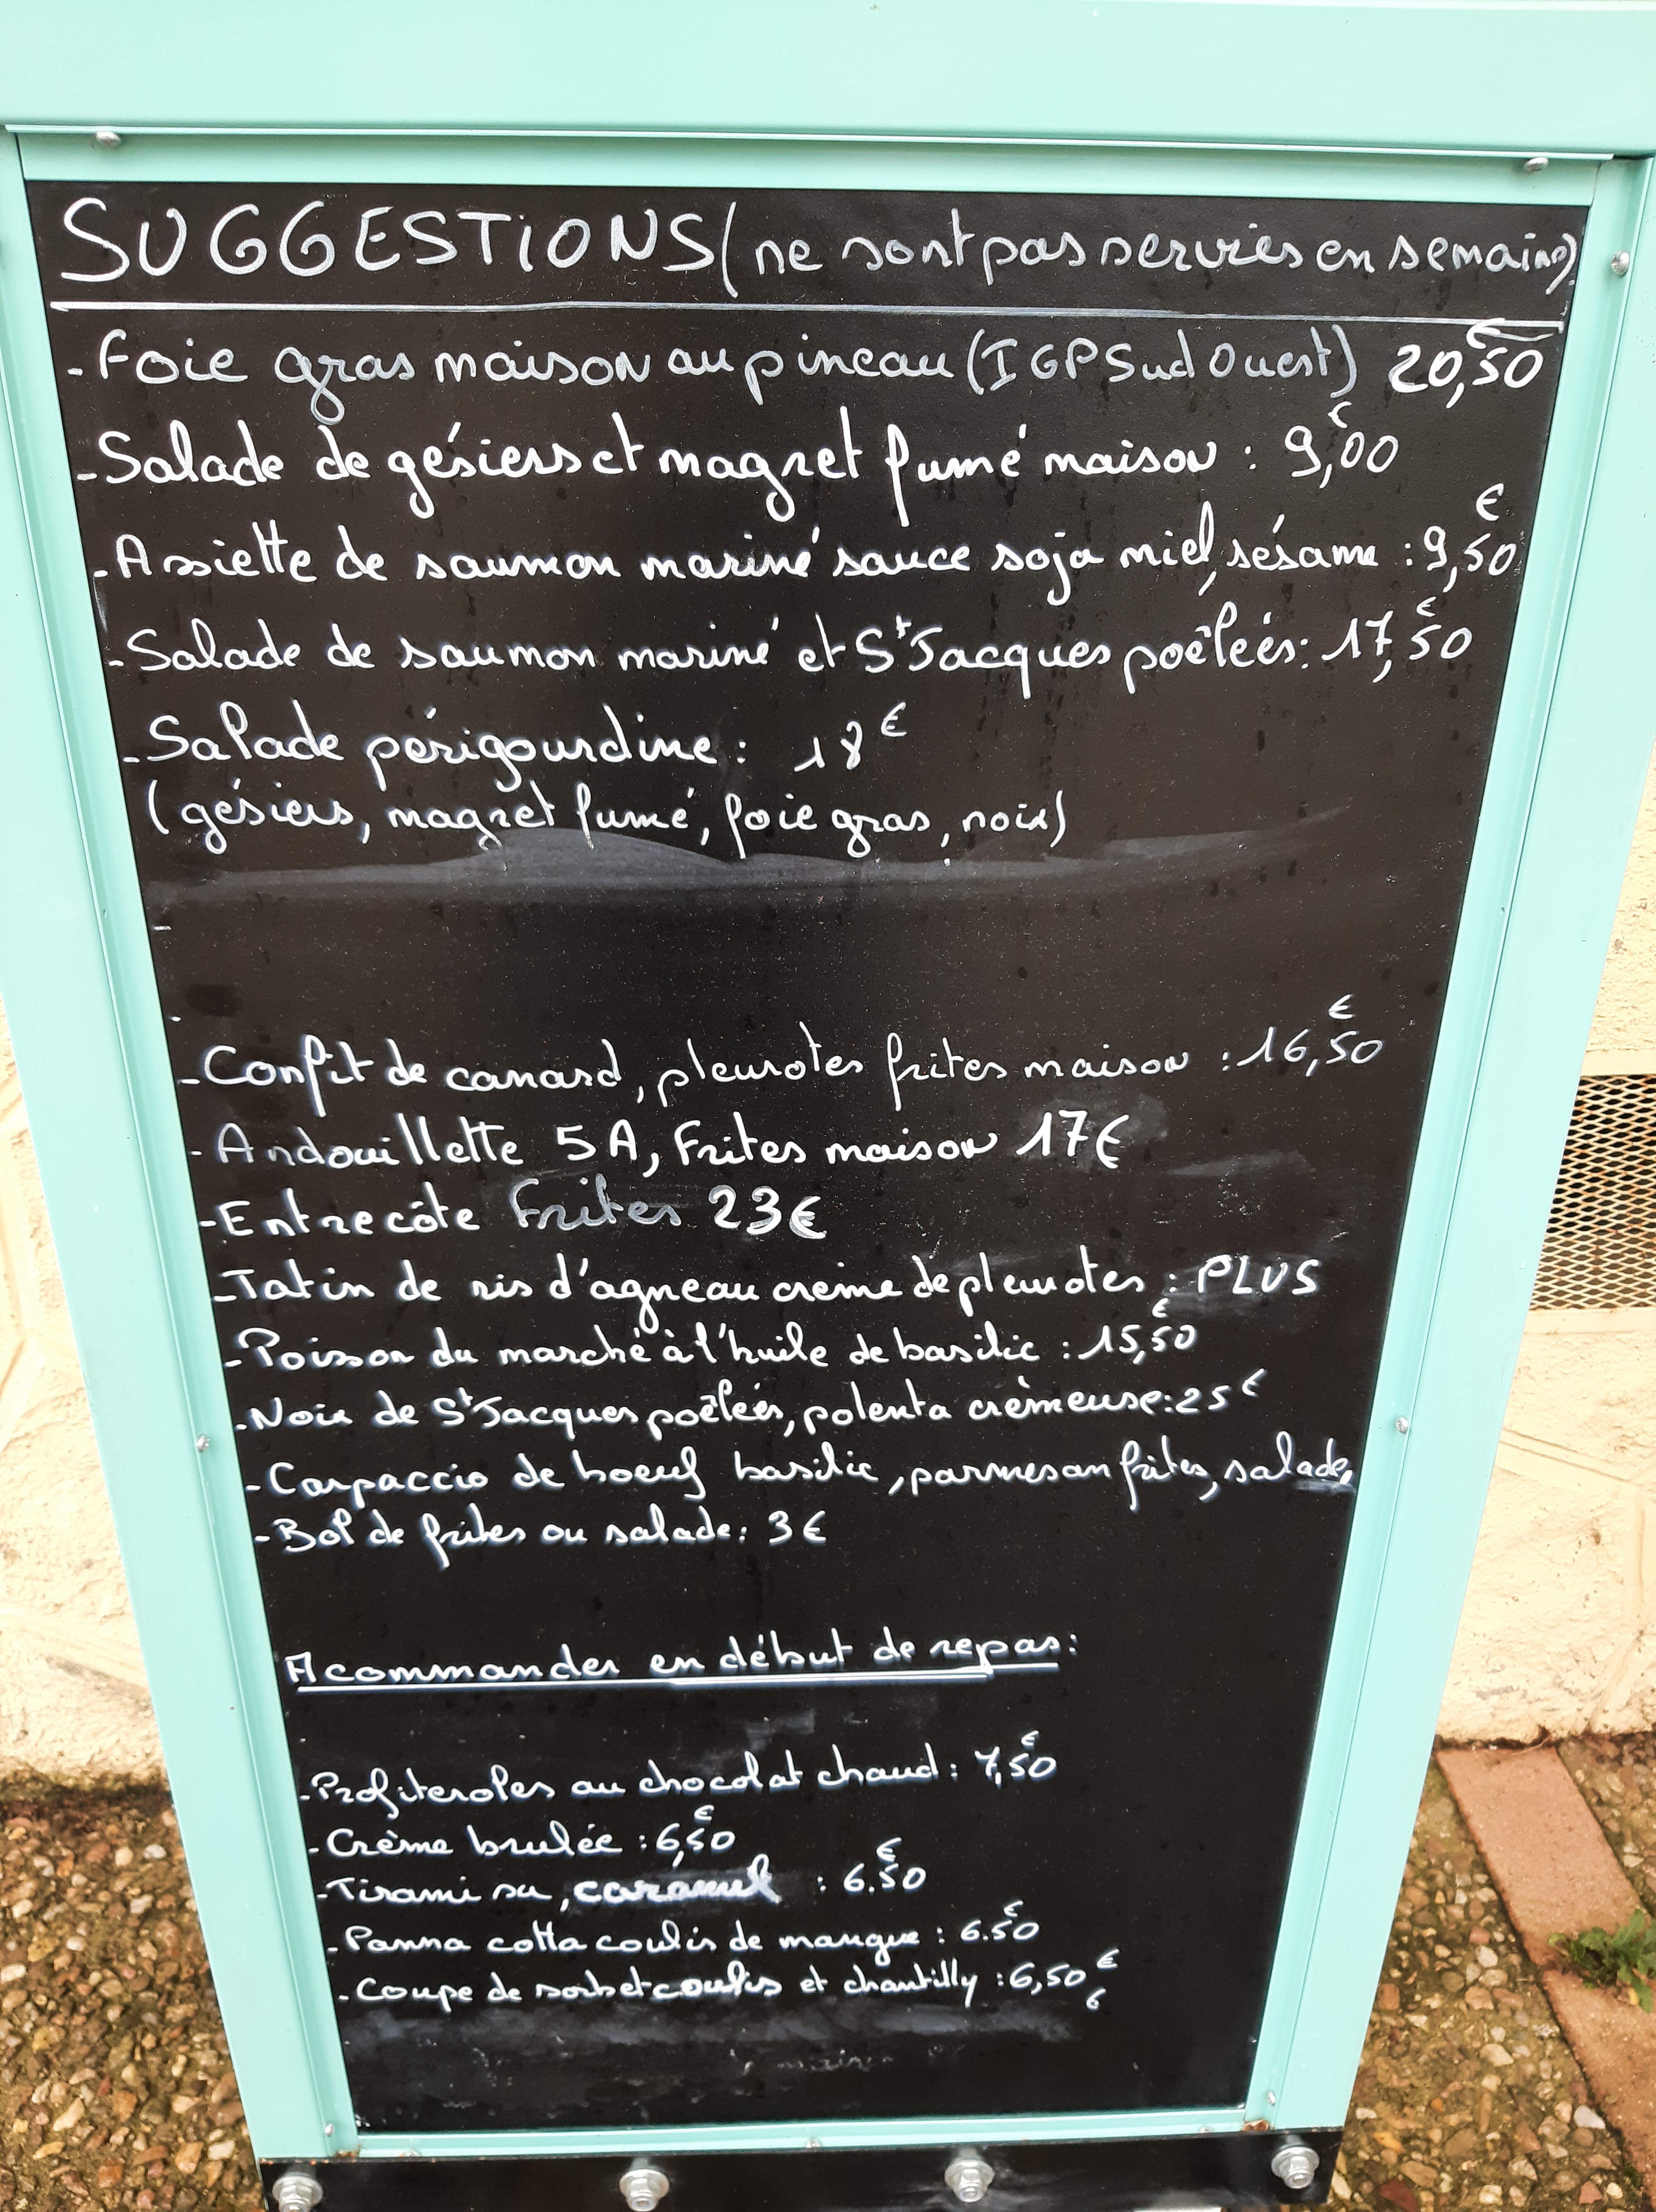 SUGGESTIONS (ne sont pas servies en semaine)
- Foie gras maison au pineau (IGP Sud Ouest) 20,50€
- Salade de gésiers et magret fumé maison : 9,00€
- Assiette de saumon mariné sauce soja miel, sésame : 9,50€
- Salade de saumon mariné et St Jacques poêlées : 17,50€
- Salade périgourdine : 18€
(gésiers, magret fumé, foie gras, noix)
- Confit de canard, pleurotes frites maison : 16,50€
- Andouillette 5A, Frites maison 17€
- Entrecôte Frites 23€
- Tatin de ris d'agneau crème de pleurotes : PLUS
- Poisson du marché à l'huile de basilic : 15,50€
- Noix de St Jacques poêlées, polenta crèmeuse : 25€
- Carpaccio de boeuf basilic, parmesan frites, salade,
- Bol de frites ou salade : 3€
A commander en début de repas :
- Profiteroles au chocolat chaud : 7,50€
- Crème brulée : 6,50€
- Tirami su, caramel : 6.50€
- Panna cotta coulis de mangue : 6.50€
- Coupe de sorbet coulis et chantilly : 6,50€